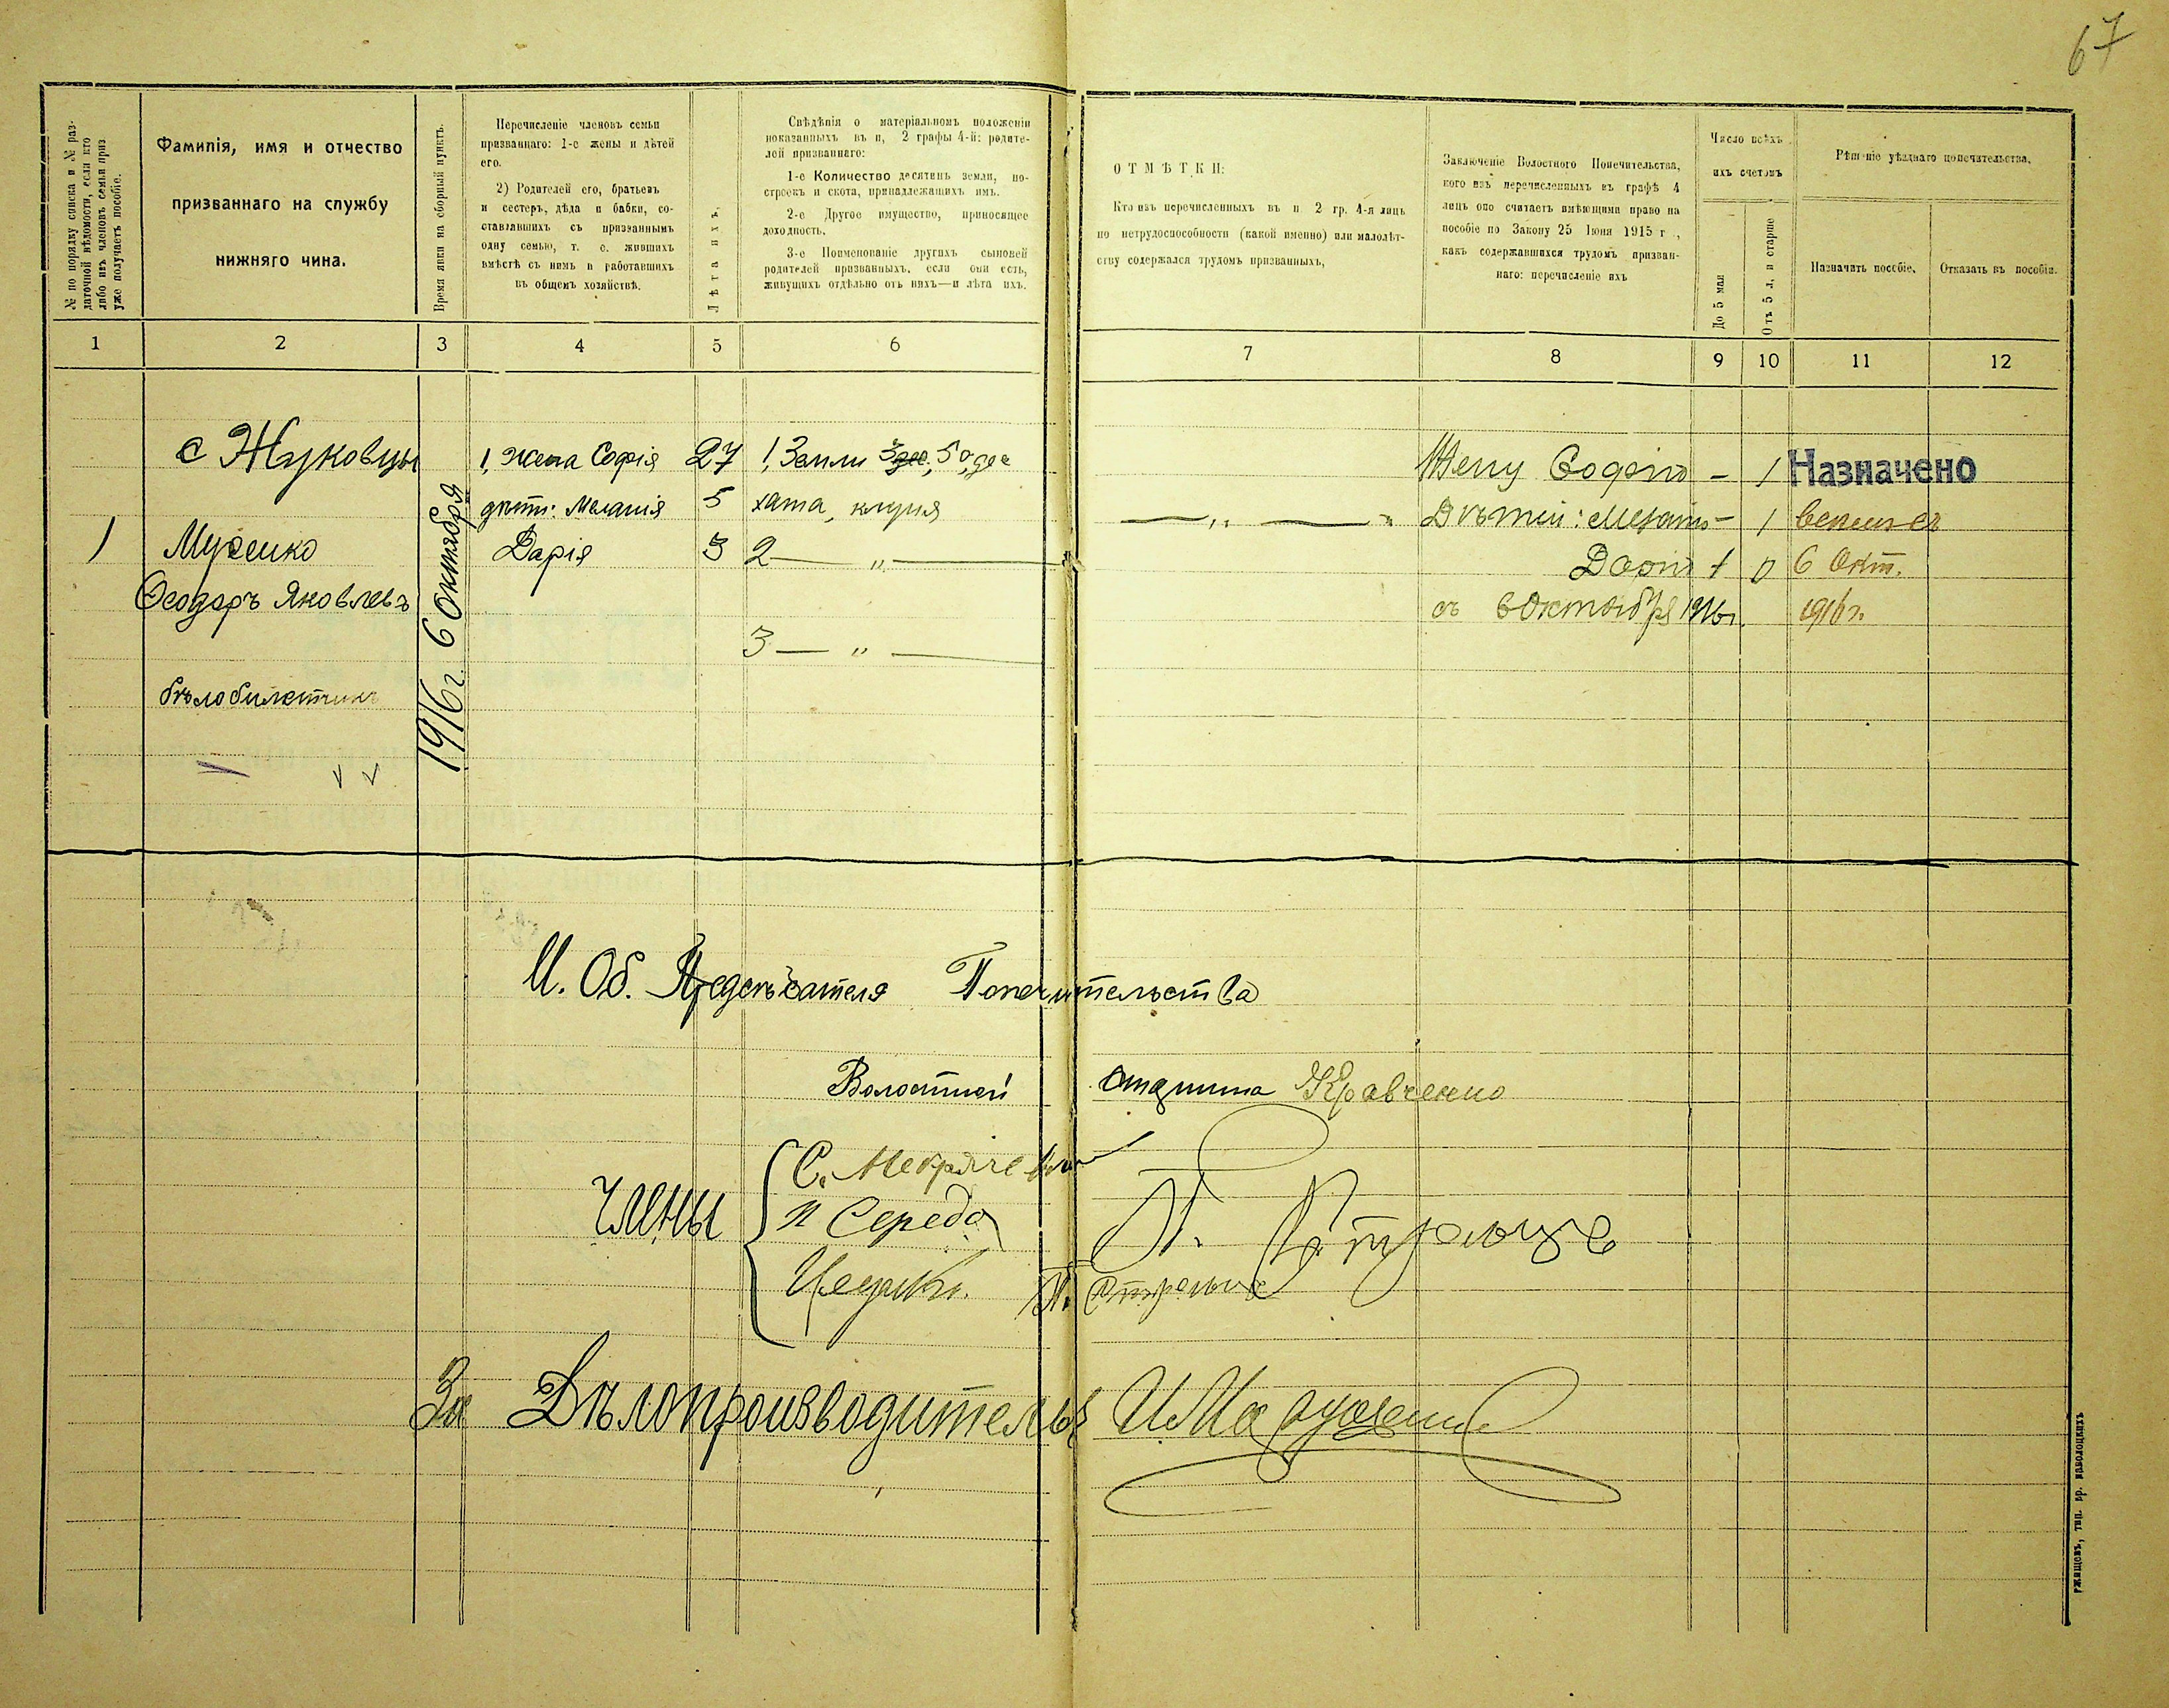 67
№ по порядку списка и № раз-
даточной вѣдомости, если кто
либо изъ членовъ семьи приз
уже получаетъ пособіе.
Фамилія, имя и отчество
призваннаго на службу
нижняго чина.
Время явки на сборный пунктъ.
Перечисленіе членовъ семьи
призваннаго: 1-е жены и дѣтей
его.
2) Родителей его, братьевъ
и сестеръ, дѣда и бабки, со-
ставлявшихъ съ призваннымъ
одну семью, т. е. жившихъ
вмѣстѣ съ нимъ и работавшихъ
въ общемъ хозяйствѣ.
Лѣта ихъ.
Свѣдѣнія о матеріальномъ положеніи
показанныхъ въ п, 2 графы 4-й: родите-
лей призваннаго:
1-е Количество десятинъ земли, по-
строекъ и скота, принадлежащихъ имъ.
2-е Другое имущество, приносящее
доходность.
3-е Поименованіе другихъ сыновей
родителей призванныхъ, если они есть,
живущихъ отдѣльно отъ нихъ—и лѣта ихъ.
ОТМѢТКИ:
Кто изъ перечисленныхъ въ п 2 гр. 4-я лицъ
по нетрудоспособности (какой именно) или малолѣт-
ству содержался трудомъ призванныхъ,
Заключеніе Волостного Попечительства,
кого изъ перечисленныхъ въ графѣ 4
лицъ оно считаетъ имѣющими право на
пособіе по Закону 25 Іюня 1915 г.,
какъ содержавшихся трудомъ призван-
наго: перечисленіе ихъ
Число всѣхъ
ихъ счетомъ
До 5 мая
Отъ 5 л, и старше
Рѣшеніе уѣзднаго попечительства.
Назначить пособіе.
Отказать въ пособіи.
1 2 3 4 5 6 7 8 9 10 11 12
с Жуковцы
1
Мусенко
Ѳеодоръ Яковлевъ
бѣлобилетникъ
1916 г. 6 Октября
1, Жена Софія 27
дѣти: Меланія 5
Дарія 3
1, Земли 5 о, дес
хата, клуня
2 — „ —
3 — „ —
— „ — „
Жену Софію – 1
Дѣтей: Меланію – 1
Дарію 1 0
съ 6 Октября 1916 г.
Назначено
6 Окт.
1916 г.
И. Об. Предсѣдателя Попечительства
Волостной старшина Кравченко
Члены
П Середа
П. Стрелец
За Дѣлопроизводителя
ржищевъ, тип. бр. наволоцкихъ